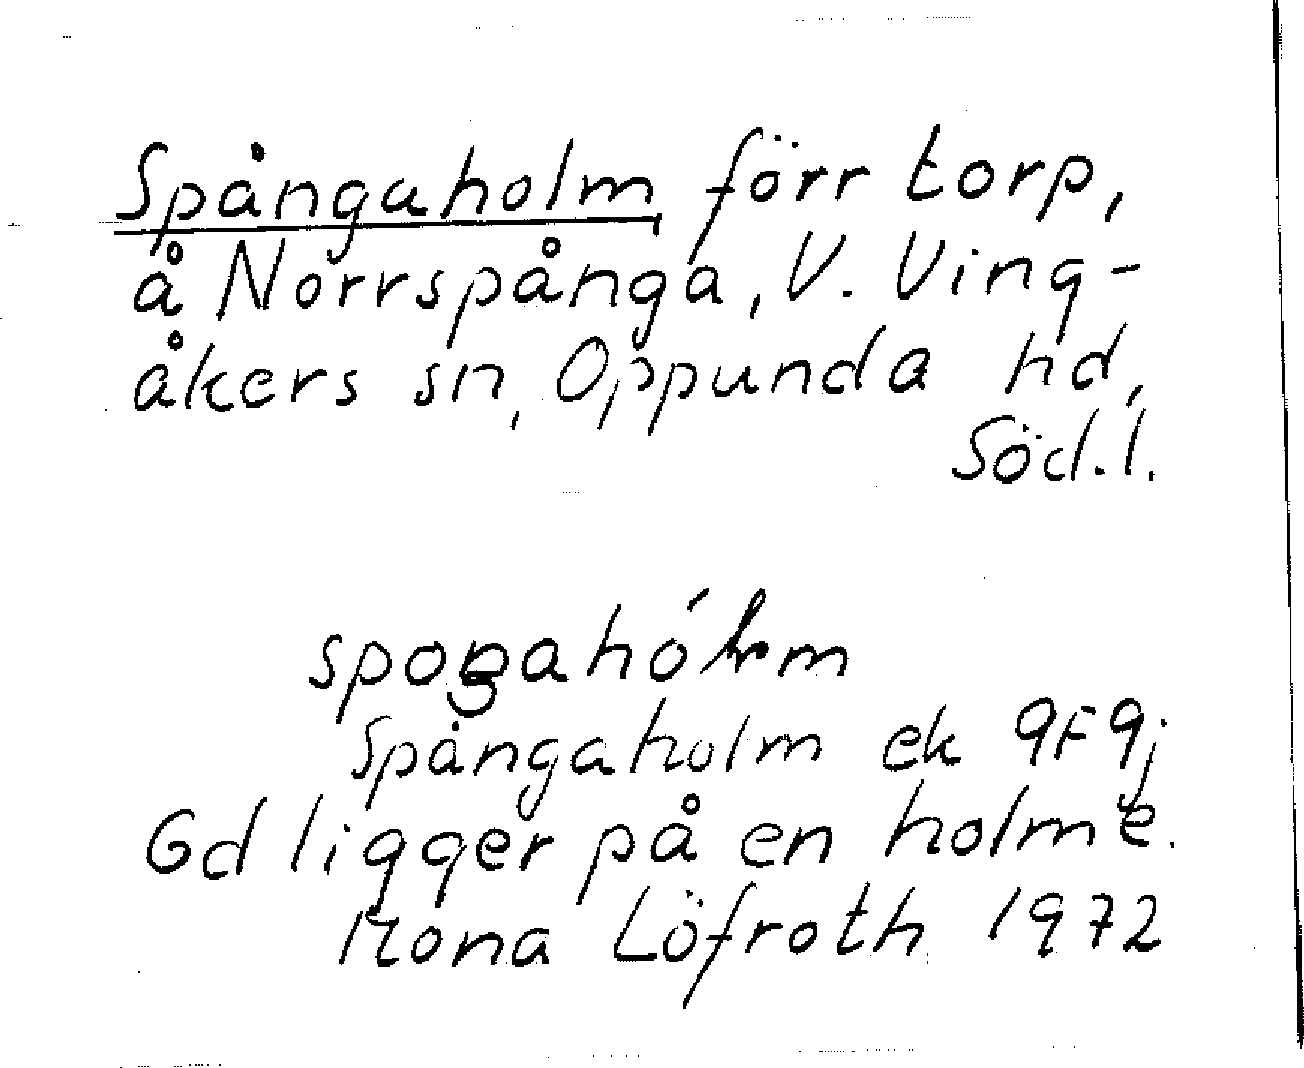 Spångaholm förr torp,
å Norrspånga, V. Ving-
åkers sn, Oppunda hd,
Söd.l.
Spångaholm ek 9F9j
Gd ligger på en holme.
Mona Löfroth 1972